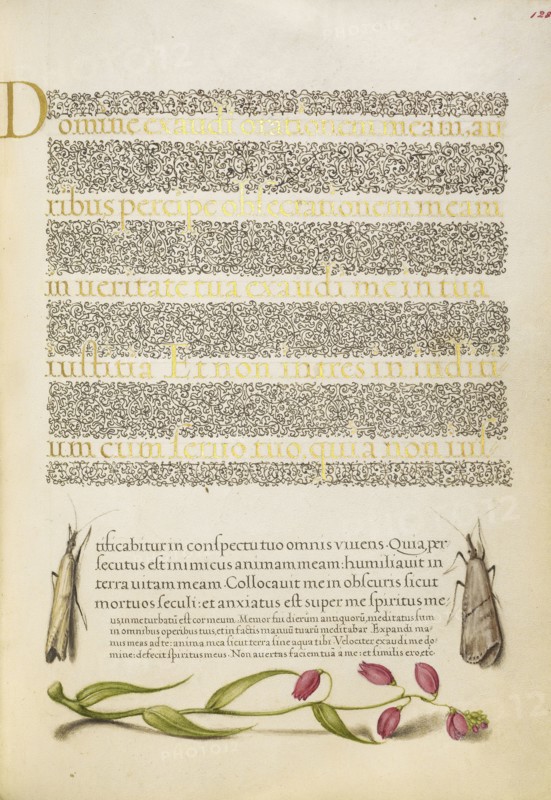 128
Domine exaudi orationem meam, au
ribus percipe obsecrationem meam
in ueritate tua exaudi me in tua
iustitia Et non intres in iuditi
um cum seruo tuo, quia non ius
tificabitur in conspectu tuo omnis viuens. Quia per
secutus est inimicus animam meam: humiliauit in
terra uitam meam Collocauit me in obscuris sicut
mortuos seculi: et anxiatus est super me spiritus me,
us in me turbatū est cor meum. Memor fui dierum antiquorū, meditatus sum
in omnibus operibus tuis, et in factis manuū tuarū meditabar. Expandi ma,
nus meas ad te: anima mea sicut terra sine aqua tibi. Velociter exaudi me do,
mine: defecit spiritus meus. Non auertas faciem tuā a me: et similis ero, etc.
PHOTO12